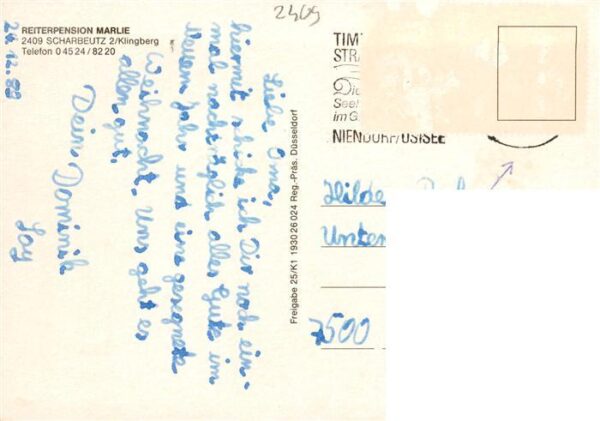 2409
REITERPENSION MARLIE
2409 SCHARBEUTZ 2/Klingberg
Telefon 0 45 24 / 82 20
24.12.88
Liebe Oma,
hiermit schicke ich Dir noch ein-
mal nachträglich alles Gute im
Neuen Jahr und eine gesegnete
Weihnacht. Uns geht es
allen gut.
Dein Dominik
Freigabe 25/K1 1930 26 024 Reg.-Präs. Düsseldorf
TIM
STRA
Die
See
im G
NIENDORF/OSTSEE
Hilde
Unter
7500